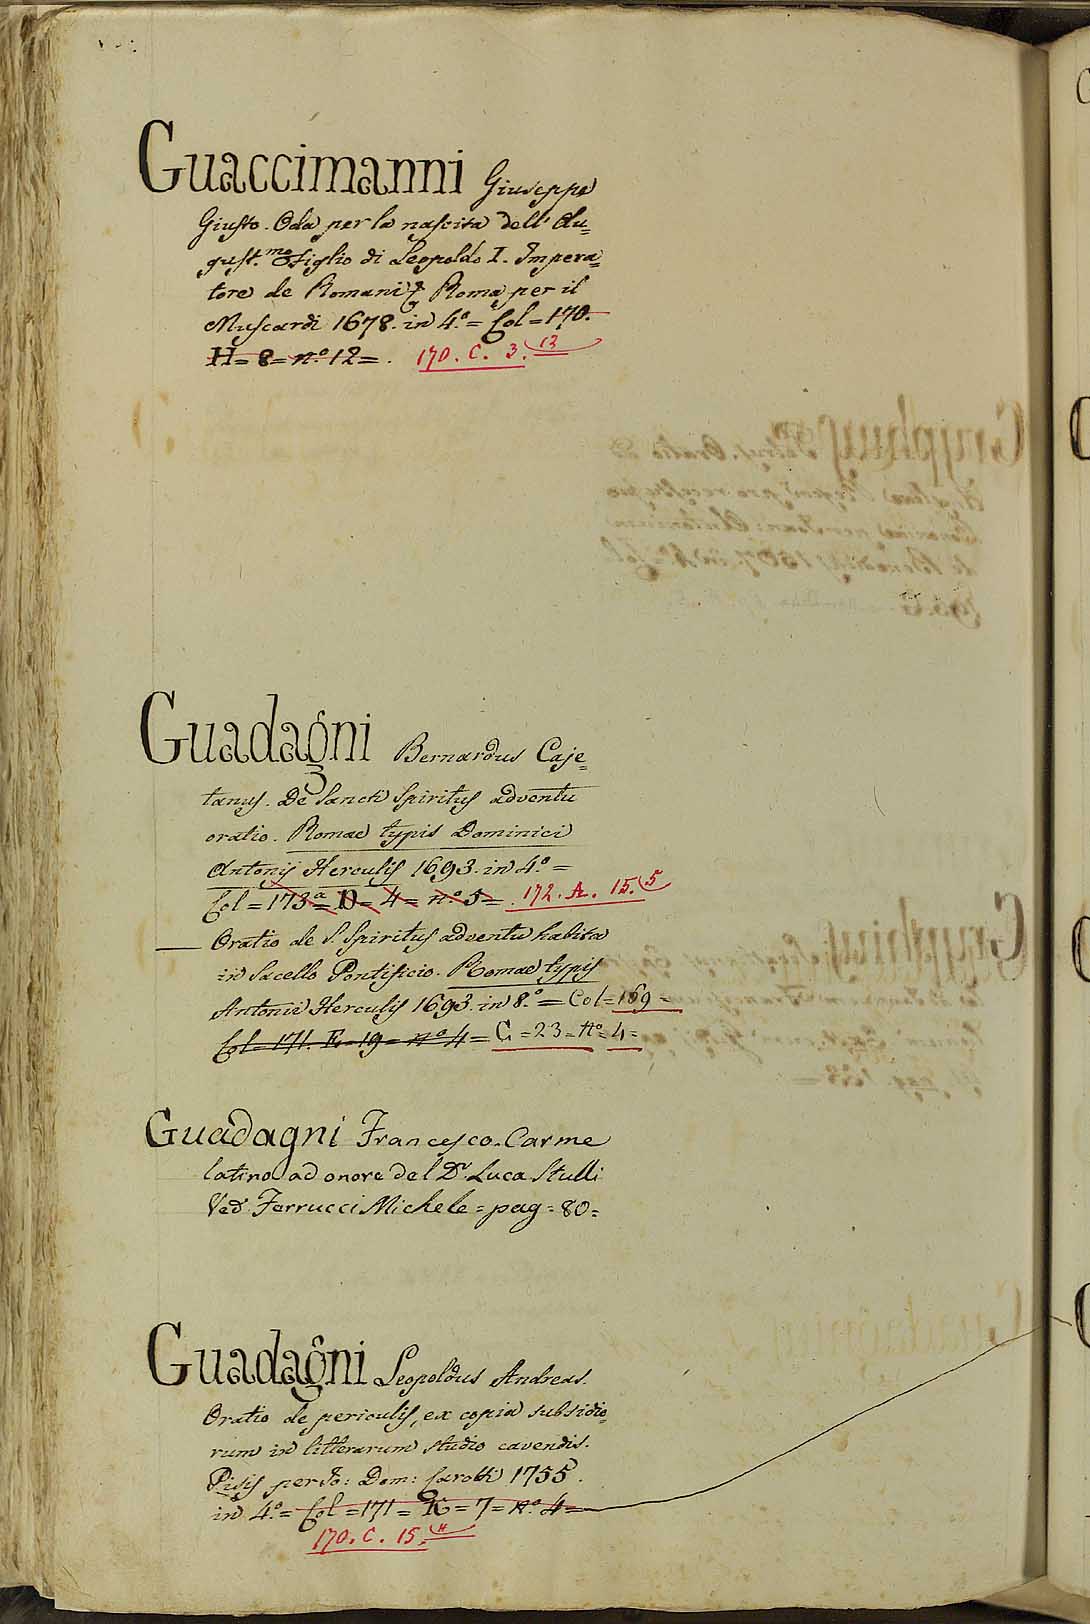 Guaccimanni Giuseppe
Giusto. Oda per la nascita dell' Au=
gust.mo Figlio di Leopoldo I. Impera=
tore de Romani &. Roma per il
Muscardi 1678. in 4.o = Col = 170.
H = 8 = n.o 12 = . 170. C. 3. 12
Guadagni Bernardus Caje=
tanus. De Sancti Spiritus adventu
oratio. Romae typis Dominici
Antonij Herculis 1693. in 4.o =
Col = 173a = D = 4 = n.o 5 = . 172. A. 15. 5
— Oratio de S. Spiritus adventu habita
in Sacello Pontificio. Romae typis
Antonii Herculis 1693. in 8.o = Col = 169 =
Col = 171. E = 19 = n.o 4 = C = 23 = No = 4 =
Guadagni Francesco. Carme
latino ad onore del Dr. Luca Stulli
Ved. Ferrucci Michele = pag = 80 =
Guadagni Leopoldus Andreas.
Oratio de periculis, ex copia subsidio=
rum in litterarum studio cavendis.
Pisis per Jo: Dom: Carotti 1755.
in 4.o = Col = 171 = K = 7 = No. 4 =
170. C. 15.